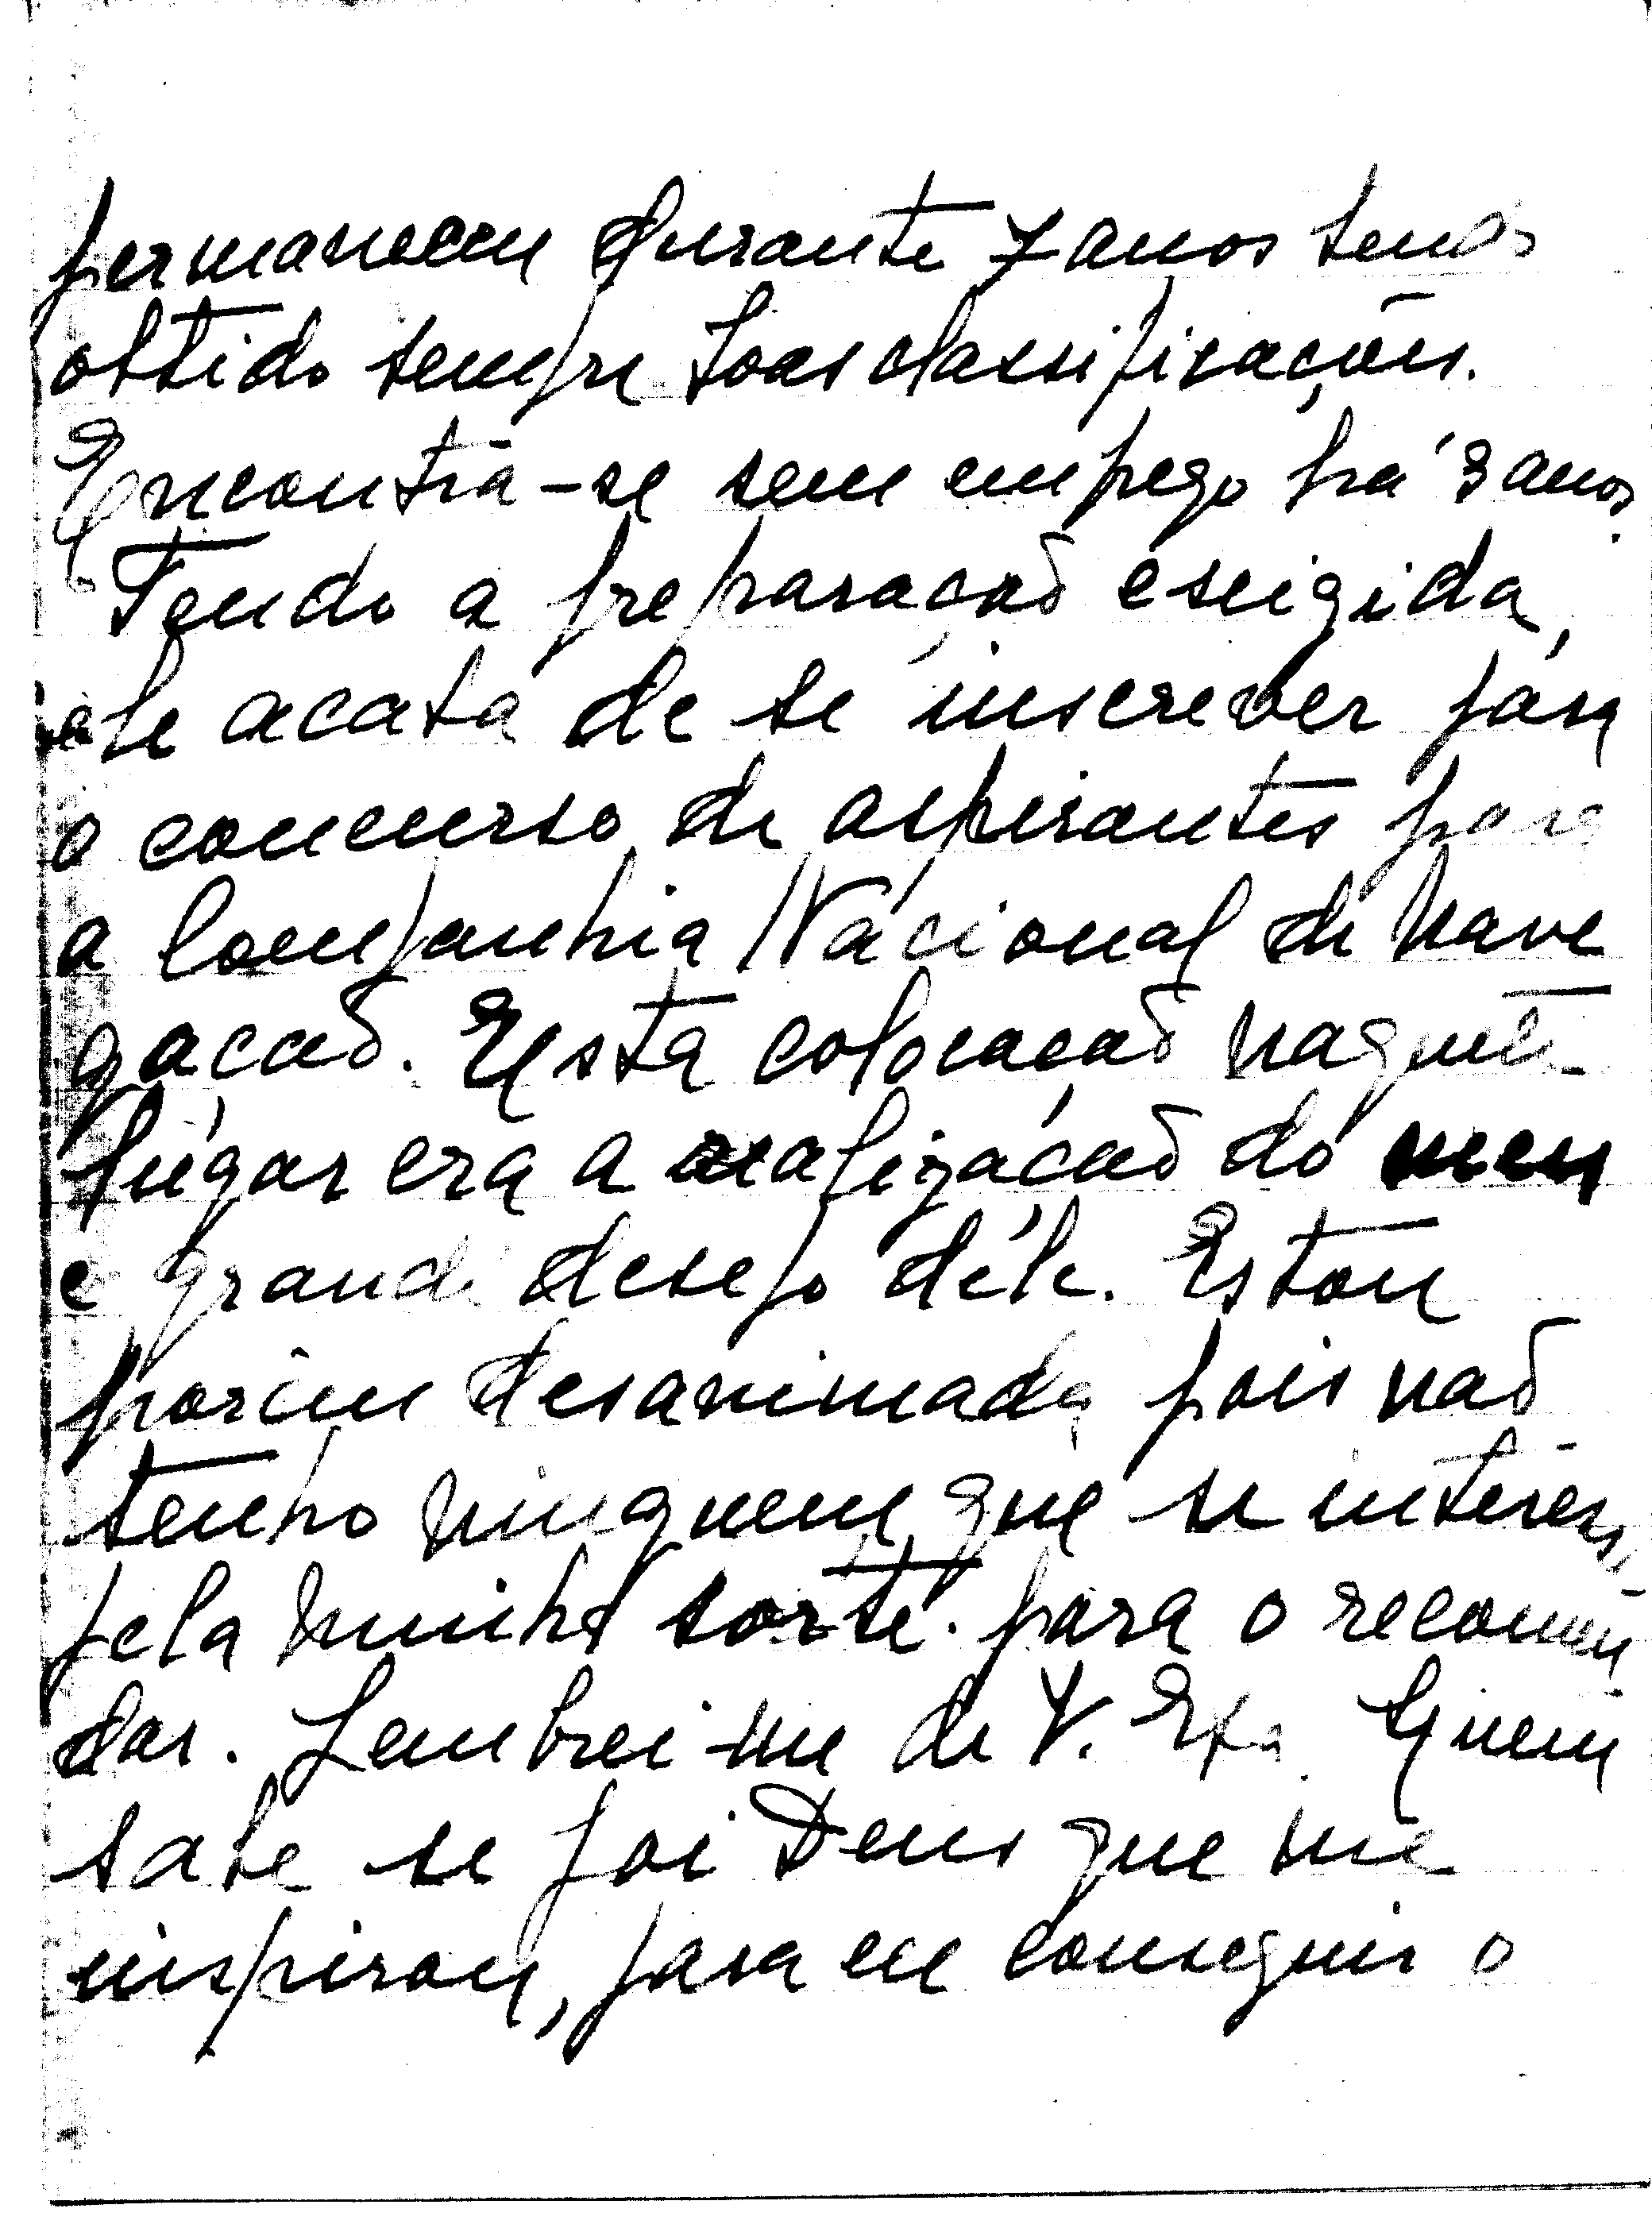 permaneceu durante 7 anos tendo
obtido sempre boas classificações.
Encontra-se sem emprego há 3 anos.
Tendo a preparação exeigida,
ele acaba de se inscrever para
o concurso de aspirantes para
a Companhia Nacional de Nave
gação. Esta colocação naquele
lugar era a realização do meu
e grande desejo dêle. Estou
porém desanimada pois não
tenho ninguem que se interesse
pela minha sorte. para o recomen
dar. Lembrei-me de V. Exa. Quem
sabe se foi Deus que me
inspirou, para eu conseguir o